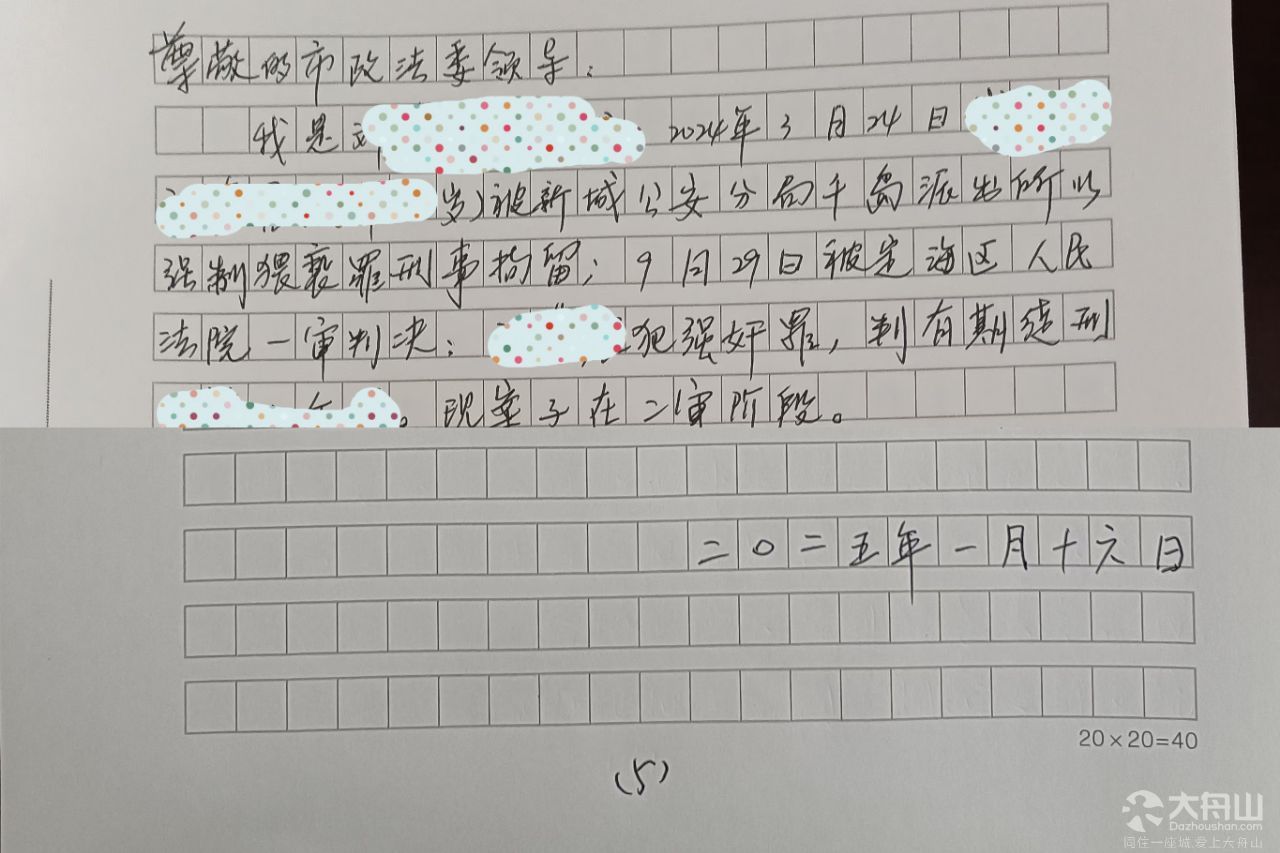 尊敬的市政法委领导：
我是 2024年3月24日
岁)被新城公安分局千岛派出所以
强制猥亵罪刑事拘留；9月29日被定海区人民
法院一审判决： 犯强奸罪，判有期徒刑
。现案子在二审阶段。
二〇二五年一月十六日
20×20=40
(5)
大舟山
Dazhoushan.com
同住一座城.爱上大舟山